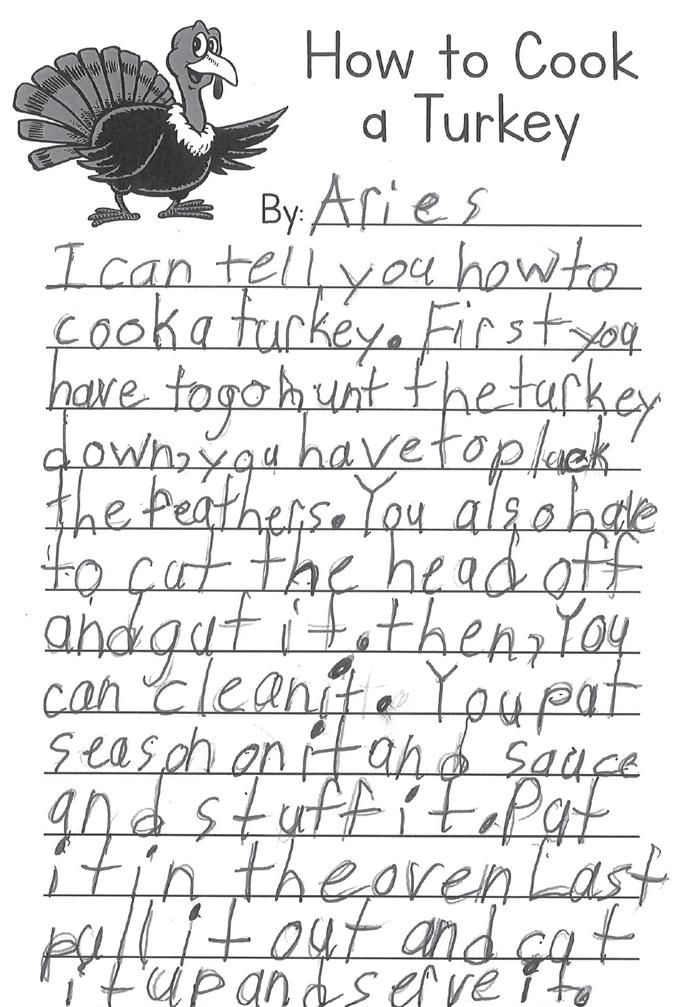 How to Cook
a Turkey
By: Aries
I can tell you how to
cook a turkey. First you
have to go hunt the turkey
down, you have to pluck
the feathers. You also have
to cut the head off
and gut it. then, You
can clean it. You put
season on it and sauce
and stuff it. Put
it in the oven Last
pull it out and cut
it up and serve it.